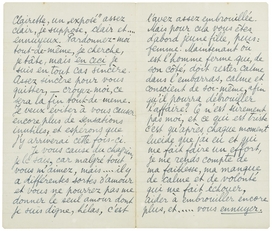 Clairette, un exposé assez
clair, je suppose, clair et....
ennuyeux. Pardonnez-moi
tout-de-même, je cherche,
je tâte, mais en ceci je
suis en tout cas sincère.
Assez sincère pour vous
quitter, — croyez-moi, ce
sera la fin bonne de
Je veux éviter à vous
encore plus de sensations
inutiles, et espérons que
j'y arriverai cette fois-ci.
Je vous cause du chagrin,
je le sais, car malgré tout
vous m'aimez, mais.... il y
a différentes sortes d'amour
et vous ne pourrez pas me
donner le seul amour dont
je suis digne, hélas, c'est
l'avez assez embrouillée.
Mais pour cela vous êtes
d'abord jeune fille, puis
femme. Maintenant où
est l'homme ferme que, de
son côté, doit rester calme
dans l'embarras, calme et
conscient de soi-même, afin
qu'il pourra débrouiller
l'affaire? Il n'est sûrement pas
moi, et ce qui est triste
c'est qu'après chaque moment
lucide que j'ai eu et qui
me fait faire un effort,
je me rends compte de
ma faiblesse, ma manque
de calme et de volonté
qui me fait échouer,
aider à embrouiller encore
plus, et..... vous ennuyer.